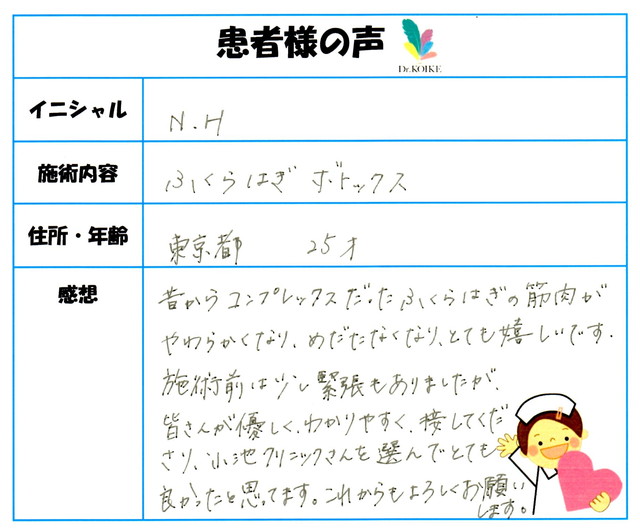 患者様の声
Dr.KOIKE
イニシャル
N.H
施術内容
ふくらはぎ ボトックス
住所・年齢
東京都 25才
感想
昔からコンプレックスだったふくらはぎの筋肉が
やわらかくなり、めだたなくなり、とても嬉しいです.
施術前は少し緊張もありましたが、
皆さんが優しく、わかりやすく、接してくだ
さり、小池クリニックさんを選んでとても
良かったと思ってます。これからもよろしくお願い
します。